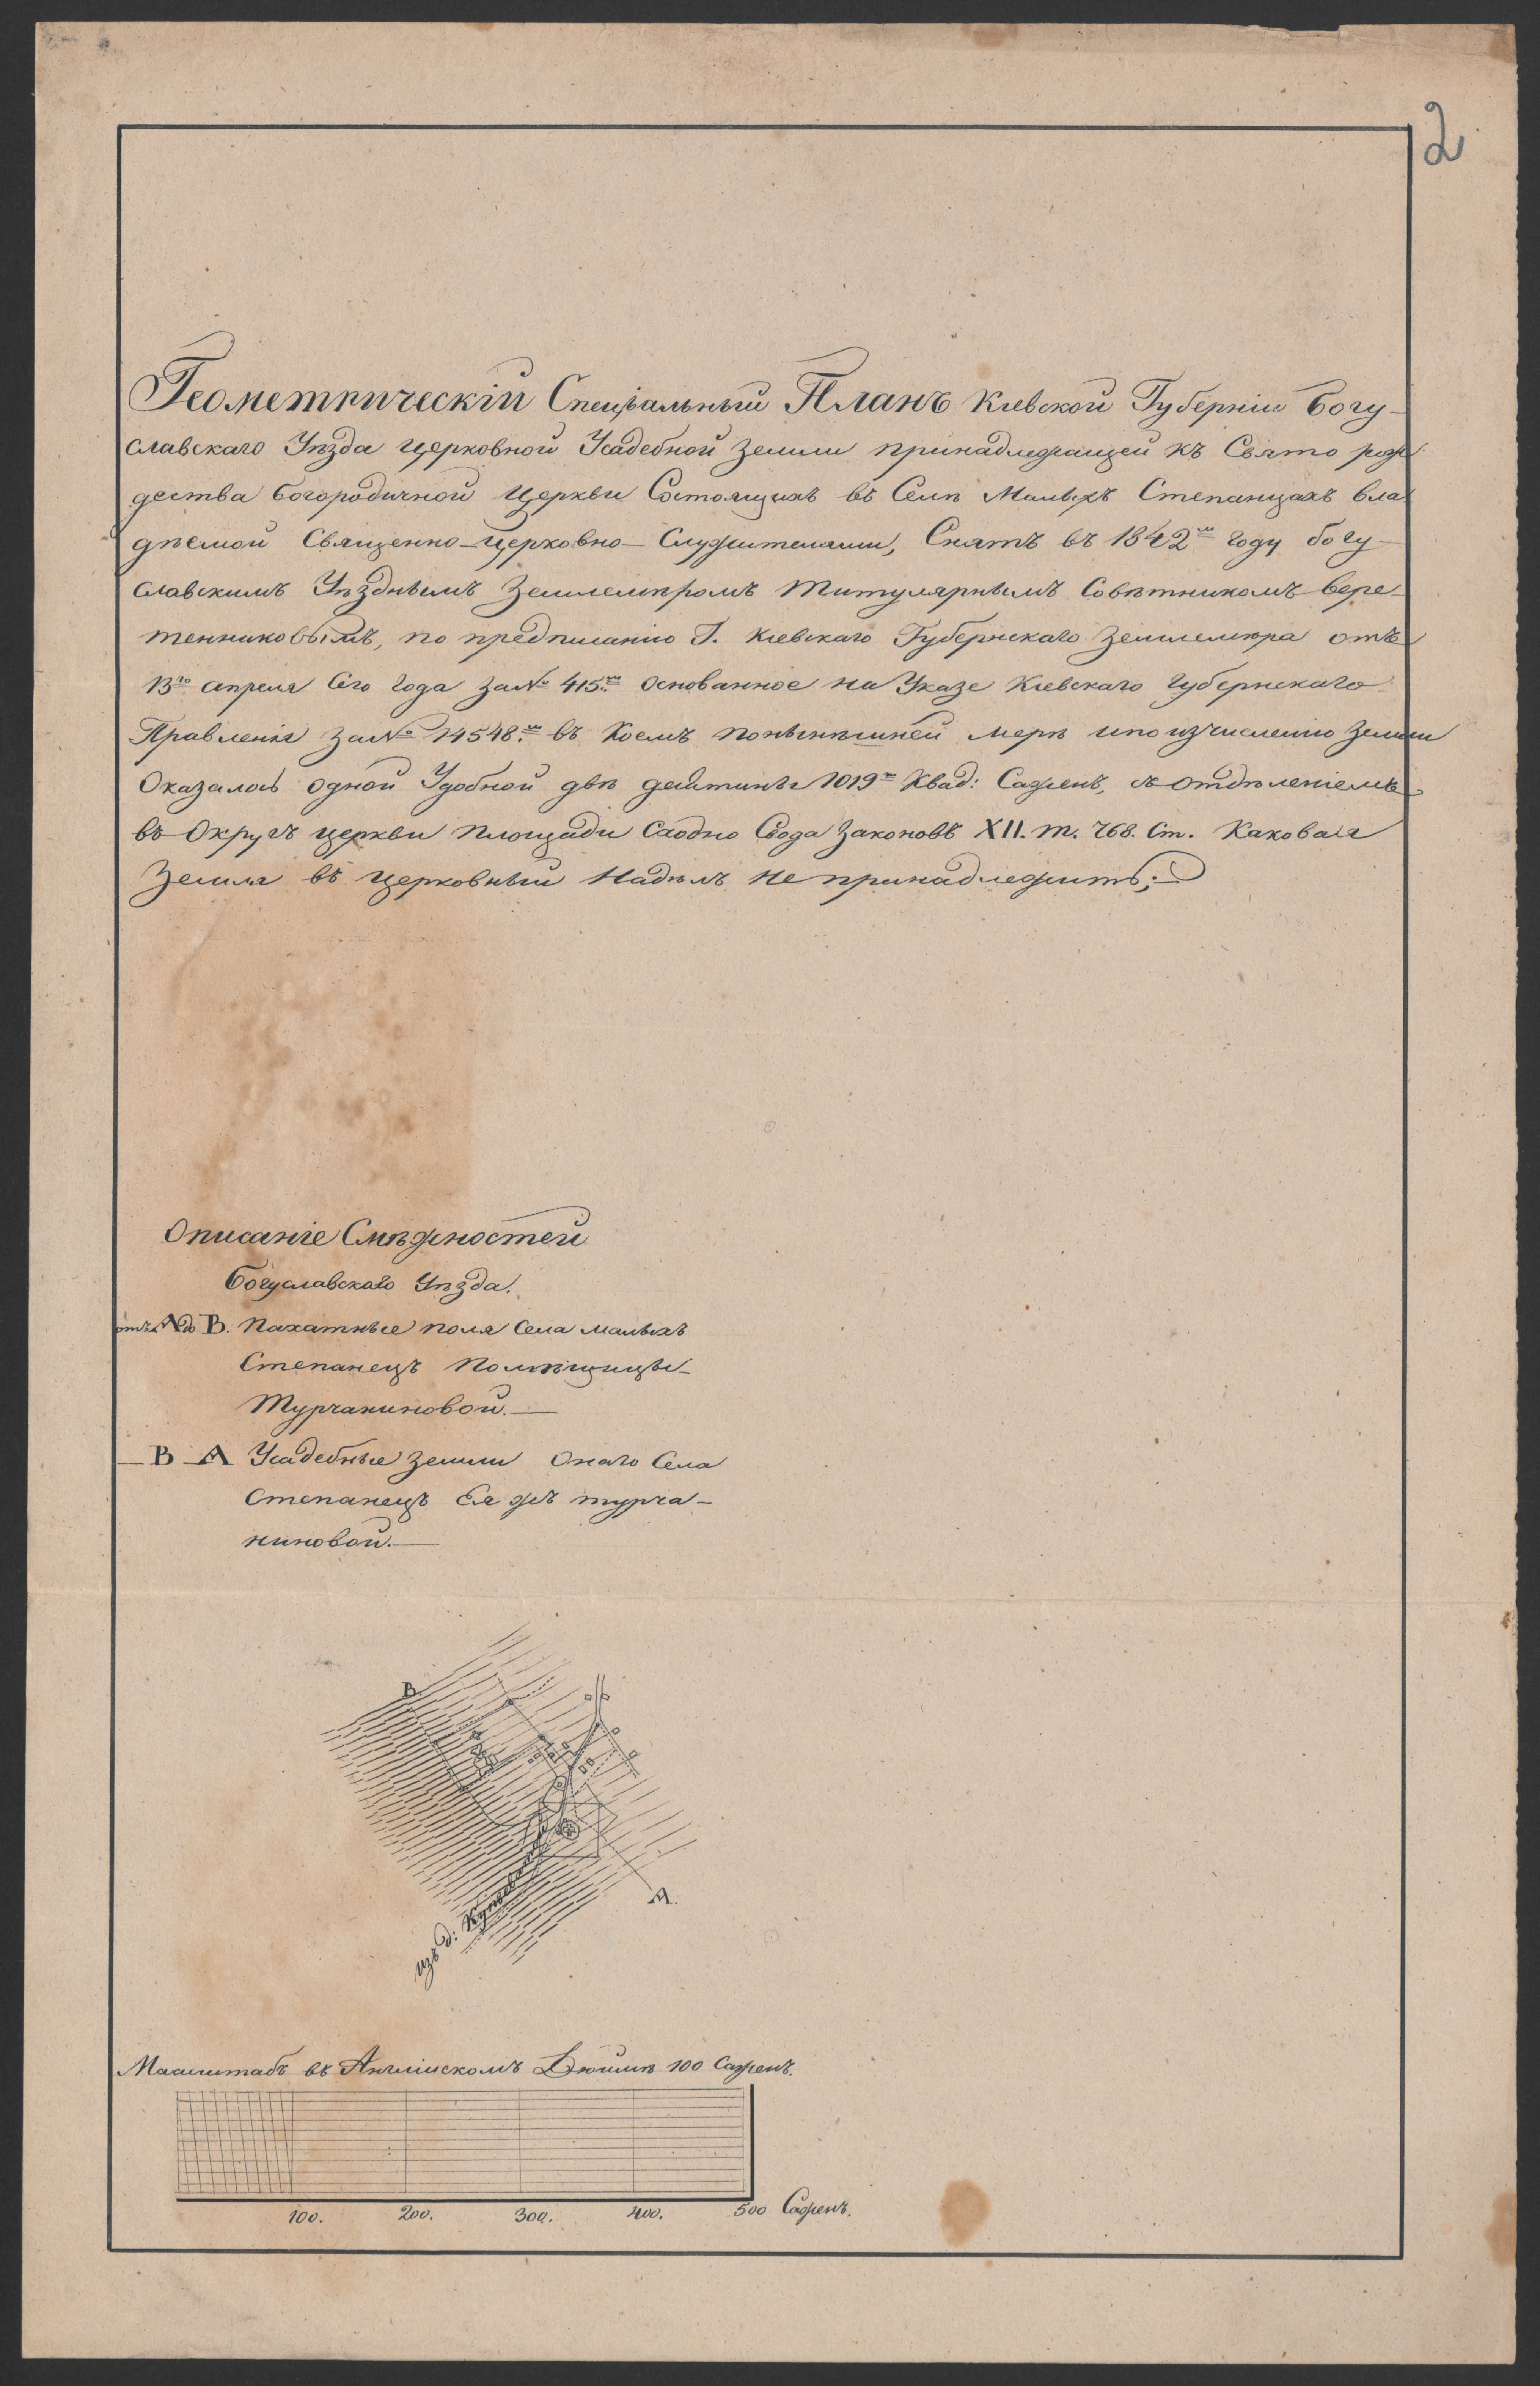 2
Геометрическій Спеціальный Планъ Кіевской Губерніи Богу-
славскаго Уѣзда церковной Усадебной Земли принадлежащей къ Свято рож
дества Богородичной Церкви Состоящихъ въ Селѣ Малыхъ Степанцахъ вла
дѣемой Священно-Церковно-Служителями, Снятъ въ 1842мъ Году Богу-
славскимъ Уѣзднымъ Землемѣромъ Титулярнымъ Совѣтникомъ Вере-
тенниковымъ, по предписанію Г. Кіевскаго Губернскаго Землемѣра отъ
13го апреля Сего Года за № 415мъ основанное на Указе Кіевскаго Губернскаго
Правленія за № 14548мъ въ Коемъ понынѣшней мерѣ ипо изчисленію Земли
Оказалось одной Удобной двѣ десятины 1019ть Квад: Саженъ, съ отдѣленіемъ
въ Округъ церкви площади Саобно Свода Законовъ XII. т. 768. Ст. Каковая
Земля въ церковный Надѣлъ не принадлежитъ;
Описаніе Смѣжностей
Богуславскаго Уѣзда.
отъ А до В. Пахатные поля Села малыхъ
Степанецъ Помѣщицы-
Турчаниновой.
В А Усадебные земли Онаго Села
Степанецъ Ея жъ турча-
ниновой.
В
А.
изъ д:
Масштабъ въ Англійскомъ Дюймѣ 100 Саженъ.
100. 200. 300. 400. 500 Саженъ.